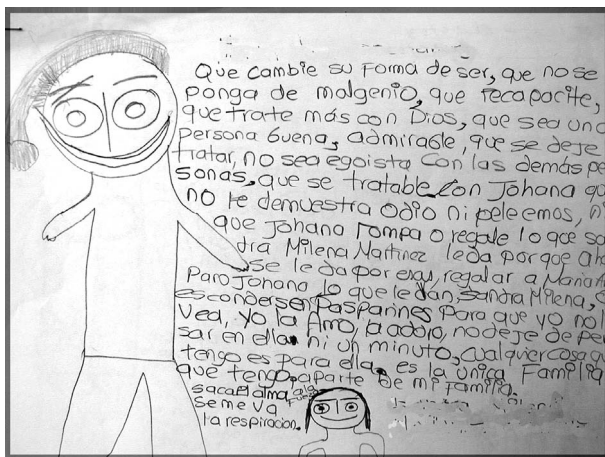 Que cambie su forma de ser, que no se
ponga de malgenio, que recapacite,
que trate más con Dios, que sea una
persona buena, admirable, que se deje
tratar, no sea egoista con las demás pe
sonas, que se tratable con Johana qu
no le demuestra odio ni peleemos,
que Johana rompa o regale lo que sa
dra Milena Martinez le da porque aho
se le da por esas, regalar a Maria
Paro Johana lo que le dan, sandra Milena,
esconderser pasparines para que yo no l
vea, yo la Amo, la adoro, no deje de pe
sar en ella ni un minuto, cualquier cosa q
tengo es para ella, es la única Familia
que tengo, aparte de mi familia.
saca el alma, a la fuerza
se me va
la respiracion.